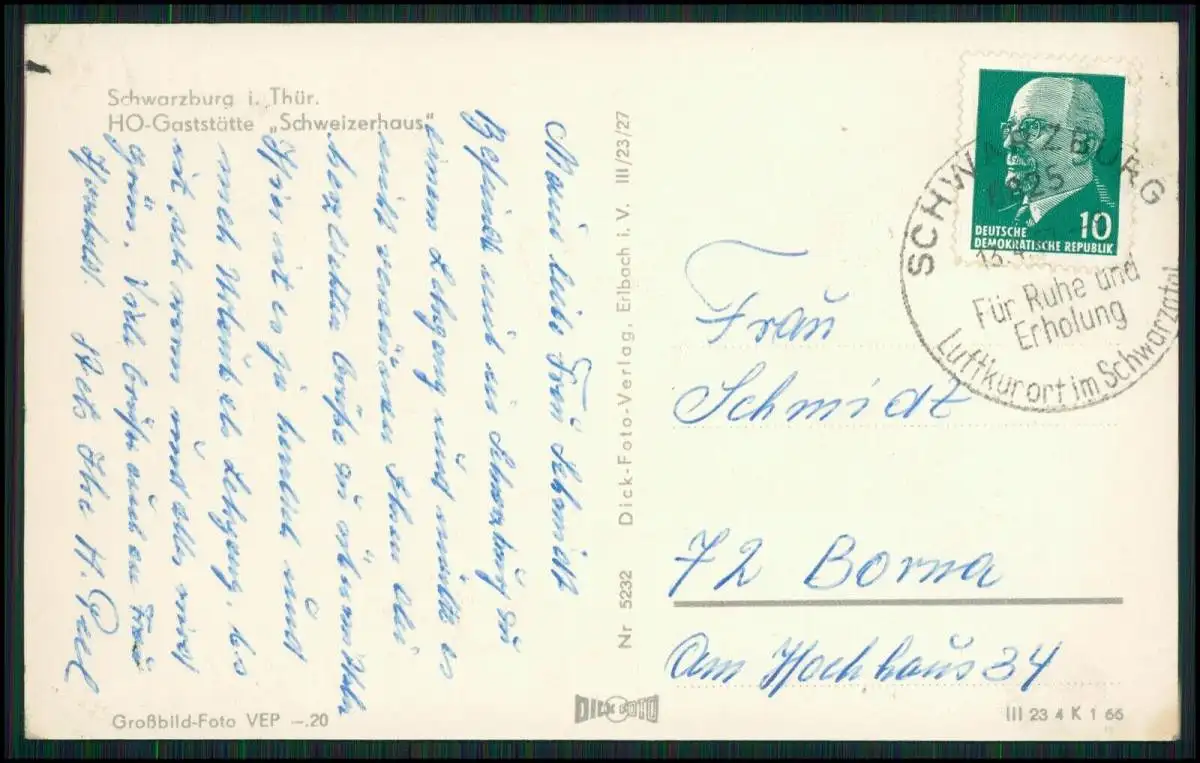 Schwarzburg i. Thür.
HO-Gaststätte „Schweizerhaus"
Meine liebe Frau Schmidt
Befinde mich in Schwarzburg zu
einem Lehrgang und möchte es
nicht versäumen Ihnen die
herzlichsten Grüße zu übermitteln
Hier ist es ja herrlich und
mehr Urlaub als Lehrgang, bis
auch wenn
grün. Viele Grüße auch an Frau
Stets Ihre H.
Großbild-Foto VEP –.20
Nr 5232 Dick-Foto-Verlag, Erlbach i. V. III/23/27
DICK FOTO
DEUTSCHE
DEMOKRATISCHE REPUBLIK
10
SCHWARZBURG
Für Ruhe und
Erholung
Luftkurort im Schwarzatal
Frau
Schmidt
72 Borna
Am Hochhaus 34
III 23 4 K 1 66